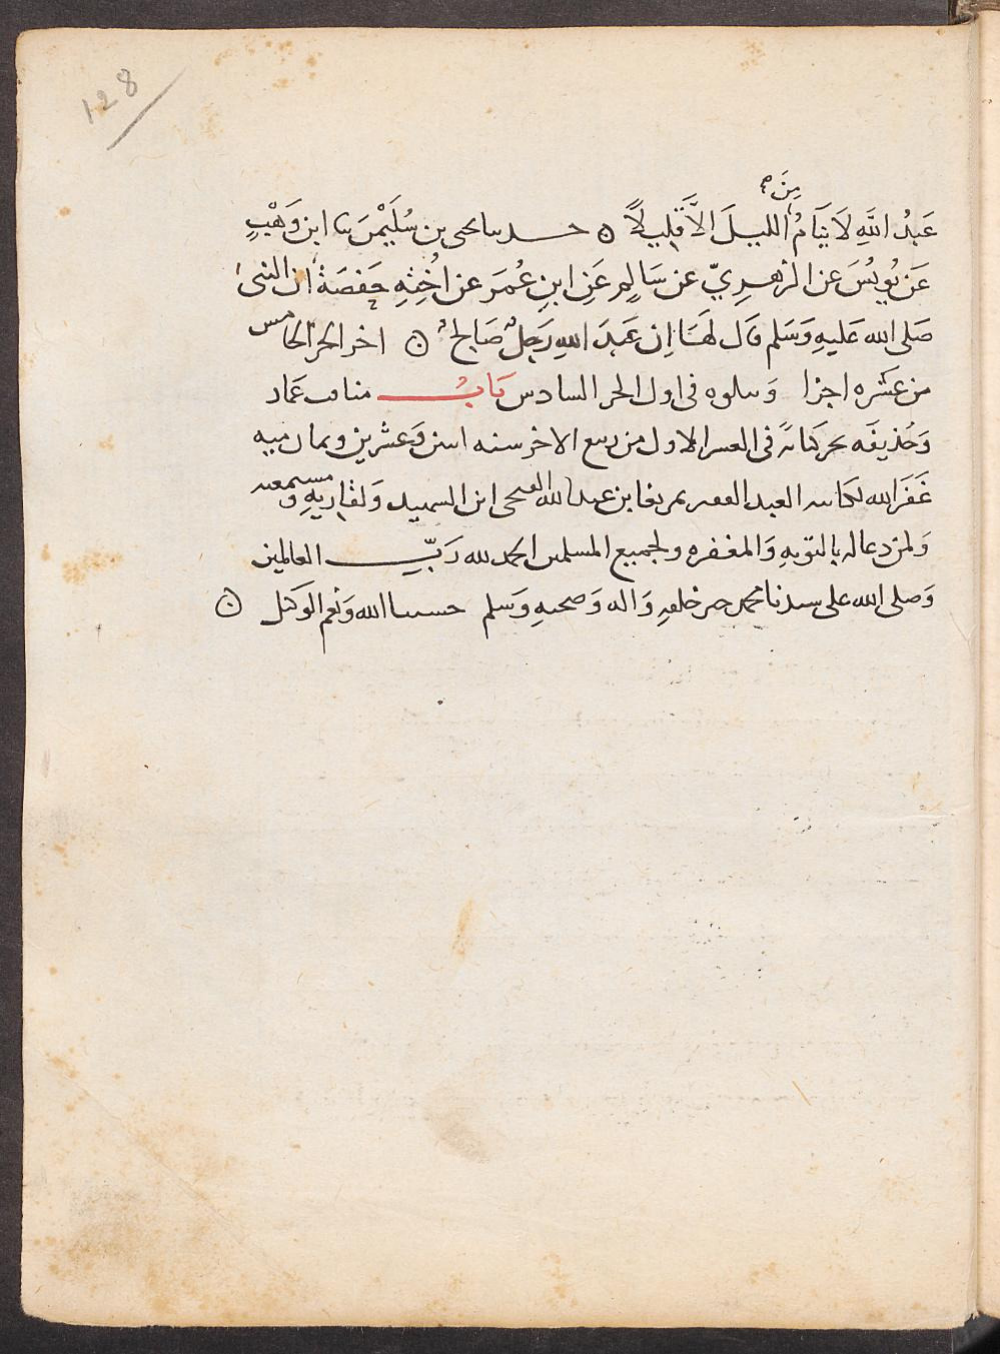 128
مِنَ
عَبْدُ اللهِ لَا يَنَامُ الليلَ الَّا قَلِيلًا ۞ حدثنا يحيى بن سُلَيْمٰنَ ثنا ابن وَهْبٍ
عَن يُونُسَ عن الزهرِيّ عن سَالِمٍ عَنِ ابنِ عُمَرَ عن اخْتِهِ حَفصَةَ ان النبى
صَلى الله عَليهِ وَسَلم قال لهَا اِن عَبدَ اللهِ رَجلٌ صَالِحٌ ۞ اخر الجز الخامس
من عَشَره اجزا وَيتلوه فى اول الجز السادس بَابُ مناقب عَمار
وَحُذيفَه نجز كتابةً فى العشر الاول من ربيع الاخر سنه اثنين وَعشرين وثمان ميه
غَفَرَ الله لكاتبه العبد الفقير تمربغا بن عبد الله الفتحى ابن السميد وَلقَاريهِ وَمستمعه
وَلمن دعا له بالتوبهِ وَالمغفره ولجميع المسلمين الحمد لله رَبِّ العالمين
وَصلى الله على سيدنا محمد خير خلقهِ وَاله وَصحبهِ وَسلم حسبنا الله وَنعم الوكيل ۞